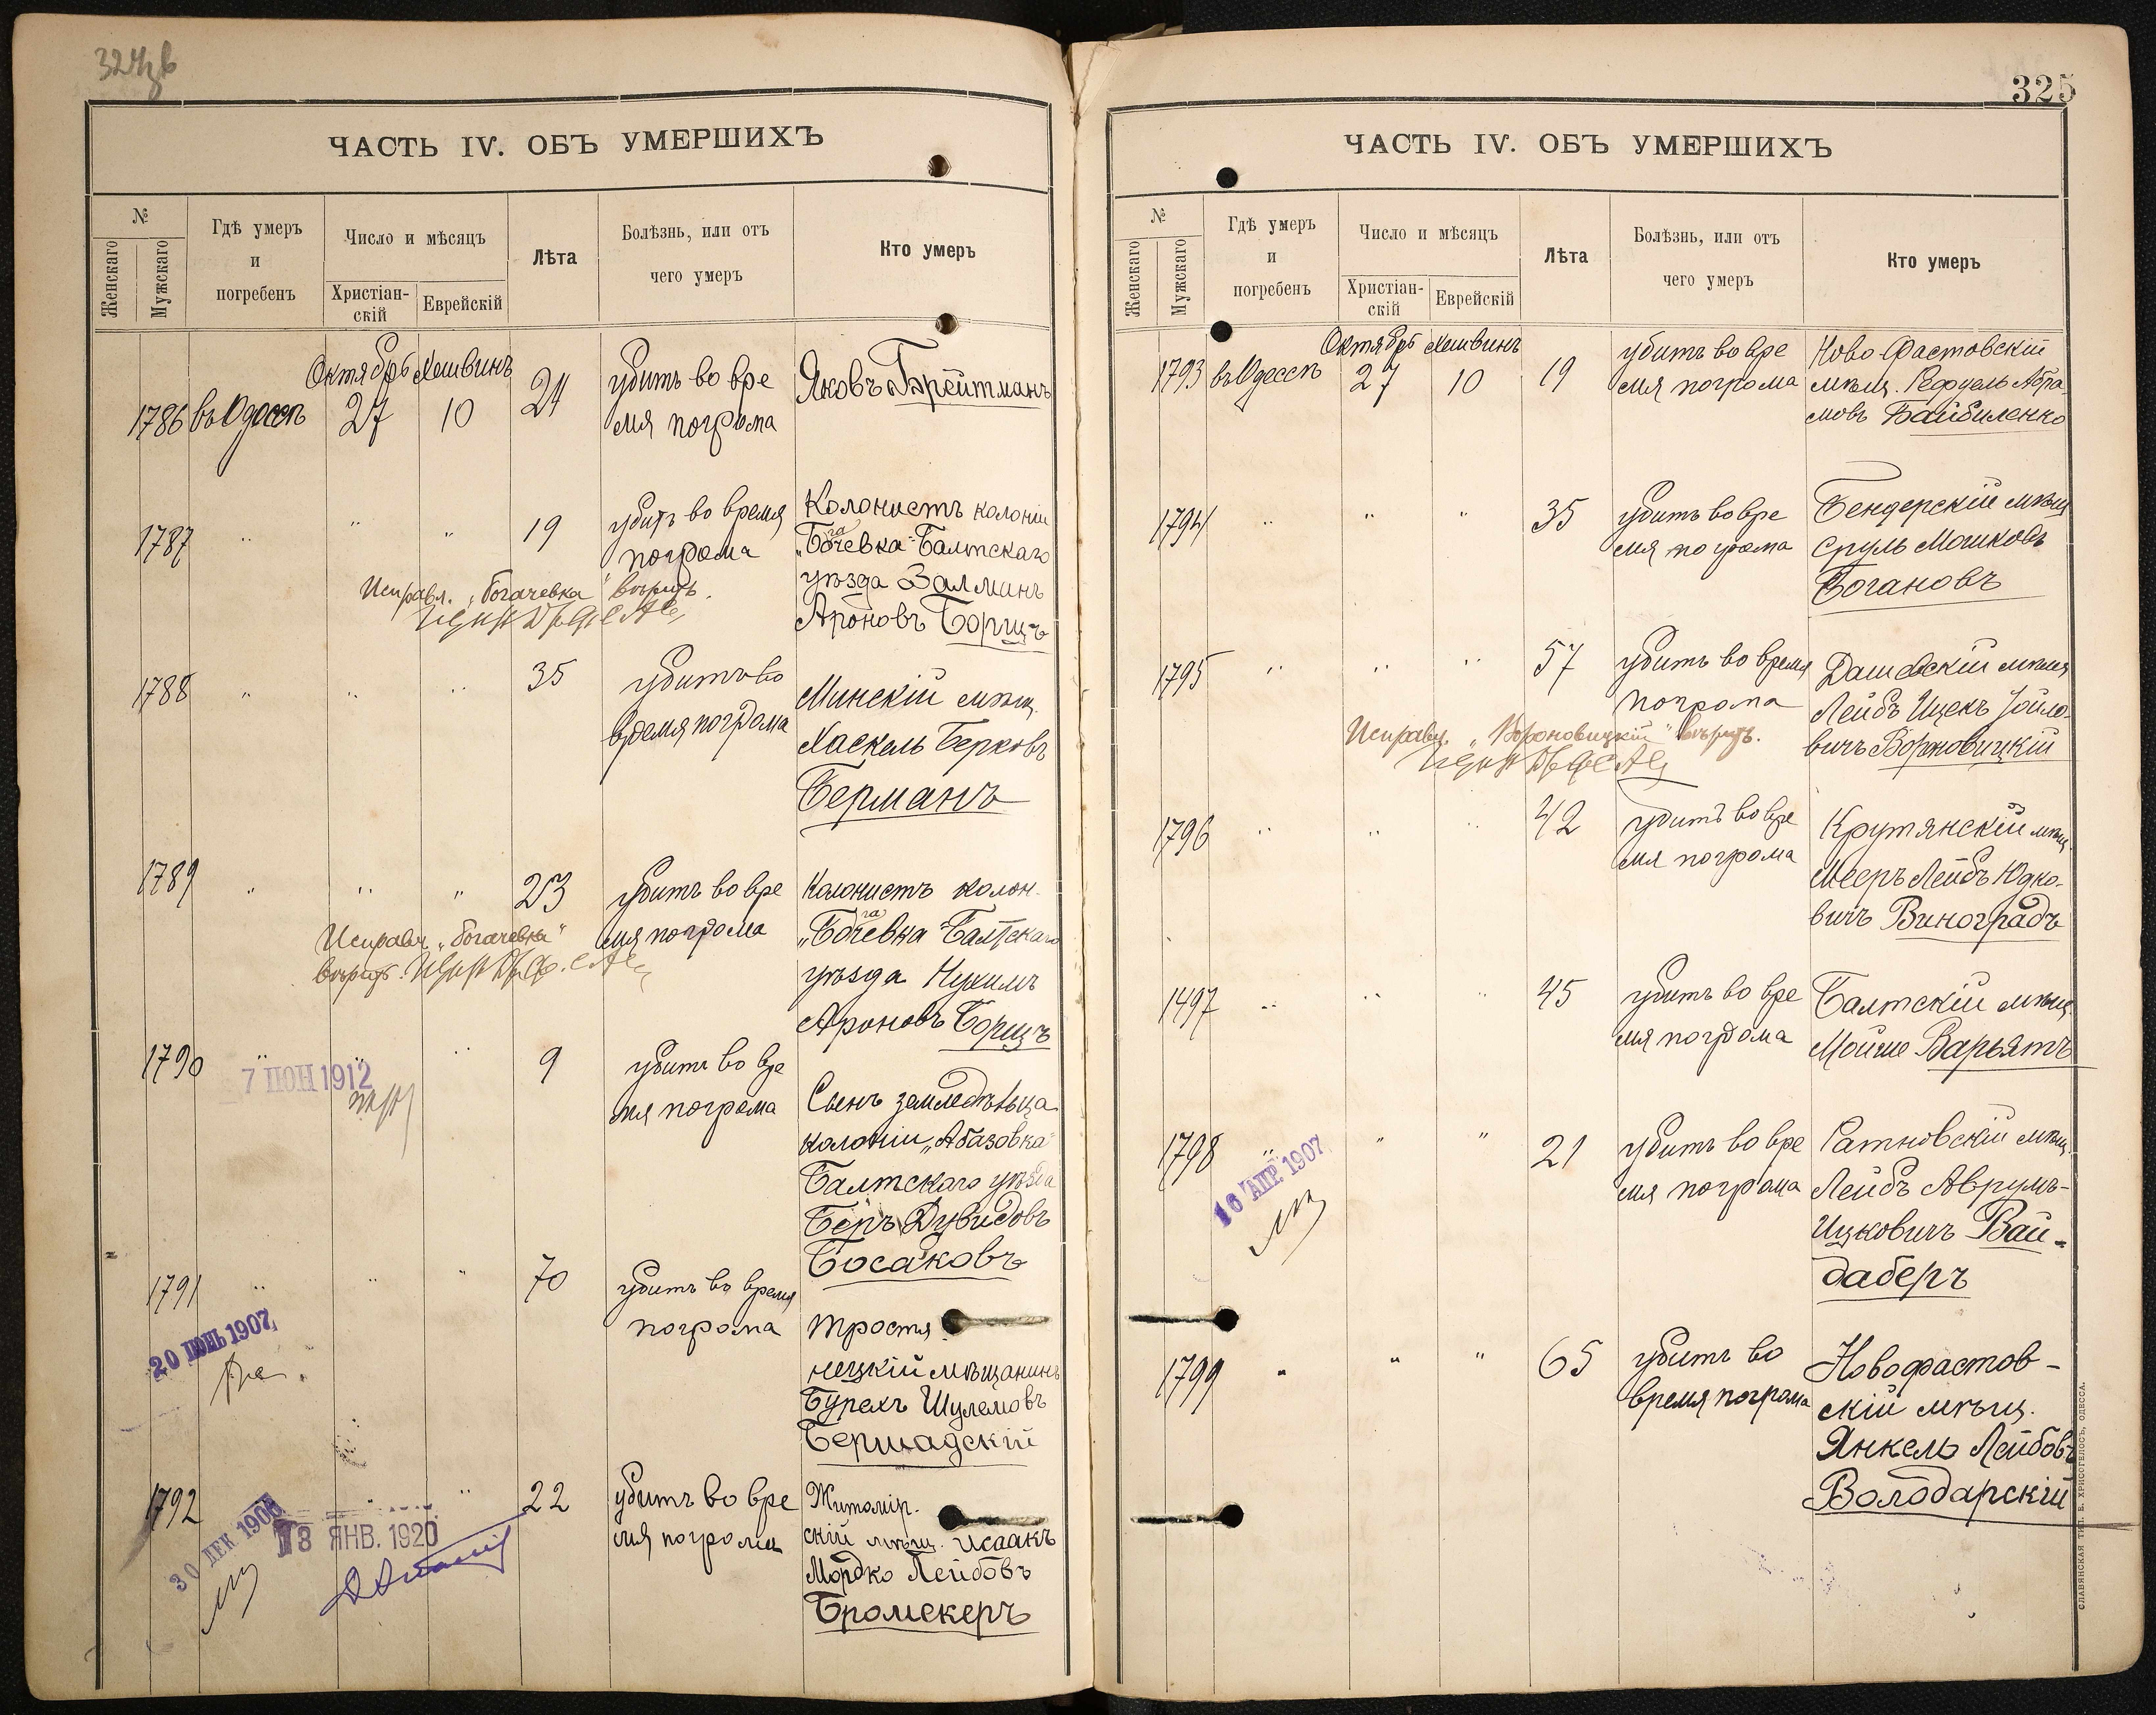 ЧАСТЬ IV. ОБЪ УМЕРШИХЪ
№
Женскаго
Мужскаго
Гдѣ умеръ
и
погребенъ
Число и мѣсяцъ
Христіан-
скій
Еврейскій
Лѣта
Болѣзнь, или отъ
чего умеръ
Кто умеръ
Октябрь Хешвинъ
1786 въ Одессѣ 27 10 24 убитъ во вре
мя погрома
Яковъ Брейтманъ
1787 " " 19 убитъ во время
погрома
Колонистъ колоніи
„Богачевка" Балтскаго
уѣзда Залманъ
Ароновъ Борщъ
Исправл. „Богачевка" вѣрить.
1788 " " " 35 убитъ во
время погрома
Минскій мѣщ.
Хаскель Берковъ
Берманъ
1789 " " " 23 убитъ во вре
мя погрома
Колонистъ колон.
„Богачевка" Балтскаго
уѣзда Нухимъ
Ароновъ Борщъ
Исправл. „Богачевка"
вѣрить.
1790 " " " 9 убитъ во вре
мя погрома
Сынъ земледѣльца
колоніи „Абазовка"
Балтскаго уѣзда
Беръ Дувидовъ
Босаковъ
7 ІЮН 1912
1791 " " " 70 убитъ во время
погрома
Тростя
нецкій мѣщанинъ
Бурехъ Шулемовъ
Бершадскій
20 ІЮНЬ 1907
1792 " " 22 убитъ во вре
мя погрома
Житомір.
скій мѣщ. Исаакъ
Мордко Лейбовъ
Бромекеръ
30 ДЕК 1906
18 ЯНВ. 1920
325
ЧАСТЬ IV. ОБЪ УМЕРШИХЪ
№
Женскаго
Мужскаго
Гдѣ умеръ
и
погребенъ
Число и мѣсяцъ
Христіан-
скій
Еврейскій
Лѣта
Болѣзнь, или отъ
чего умеръ
Кто умеръ
Октябрь Хешвинъ
1793 въ Одессѣ 27 10 19 убитъ во вре
мя погрома
Ново-Фастовскій
мѣщ. Рефуель Абра-
мовъ Байбиленко
1794 " " " 35 убитъ во вре
мя погрома
Бендерскій мѣщ
Сруль Мошковъ
Богановъ
1795 " " " 57 убитъ во время
погрома
Дашевскій мѣщ
Лейбъ Ицекъ Іойло-
вичъ Ворновицкій
Исправл. „Вороновицкій" вѣрить.
1796 " " " 42 убитъ во вре
мя погрома
Крутянскій мѣщ.
Мееръ Лейбъ Юдко-
вичъ Виноградъ
1497 " " " 45 убитъ во вре
мя погрома
Балтскій мѣщ.
Мойше Варьятъ
1798 " " " 21 убитъ во вре
мя погрома
Ратновскій мѣщ.
Лейбъ Аврумъ-
Ицковичъ Вай-
даберъ
16 АПР. 1907
1799 " " " 65 убитъ во
время погрома
Новофастов-
скій мѣщ.
Янкель Лейбовъ
Володарскій
СЛАВЯНСКАЯ ТИП. Е. ХРИСОГЕЛОСЪ, ОДЕССА.